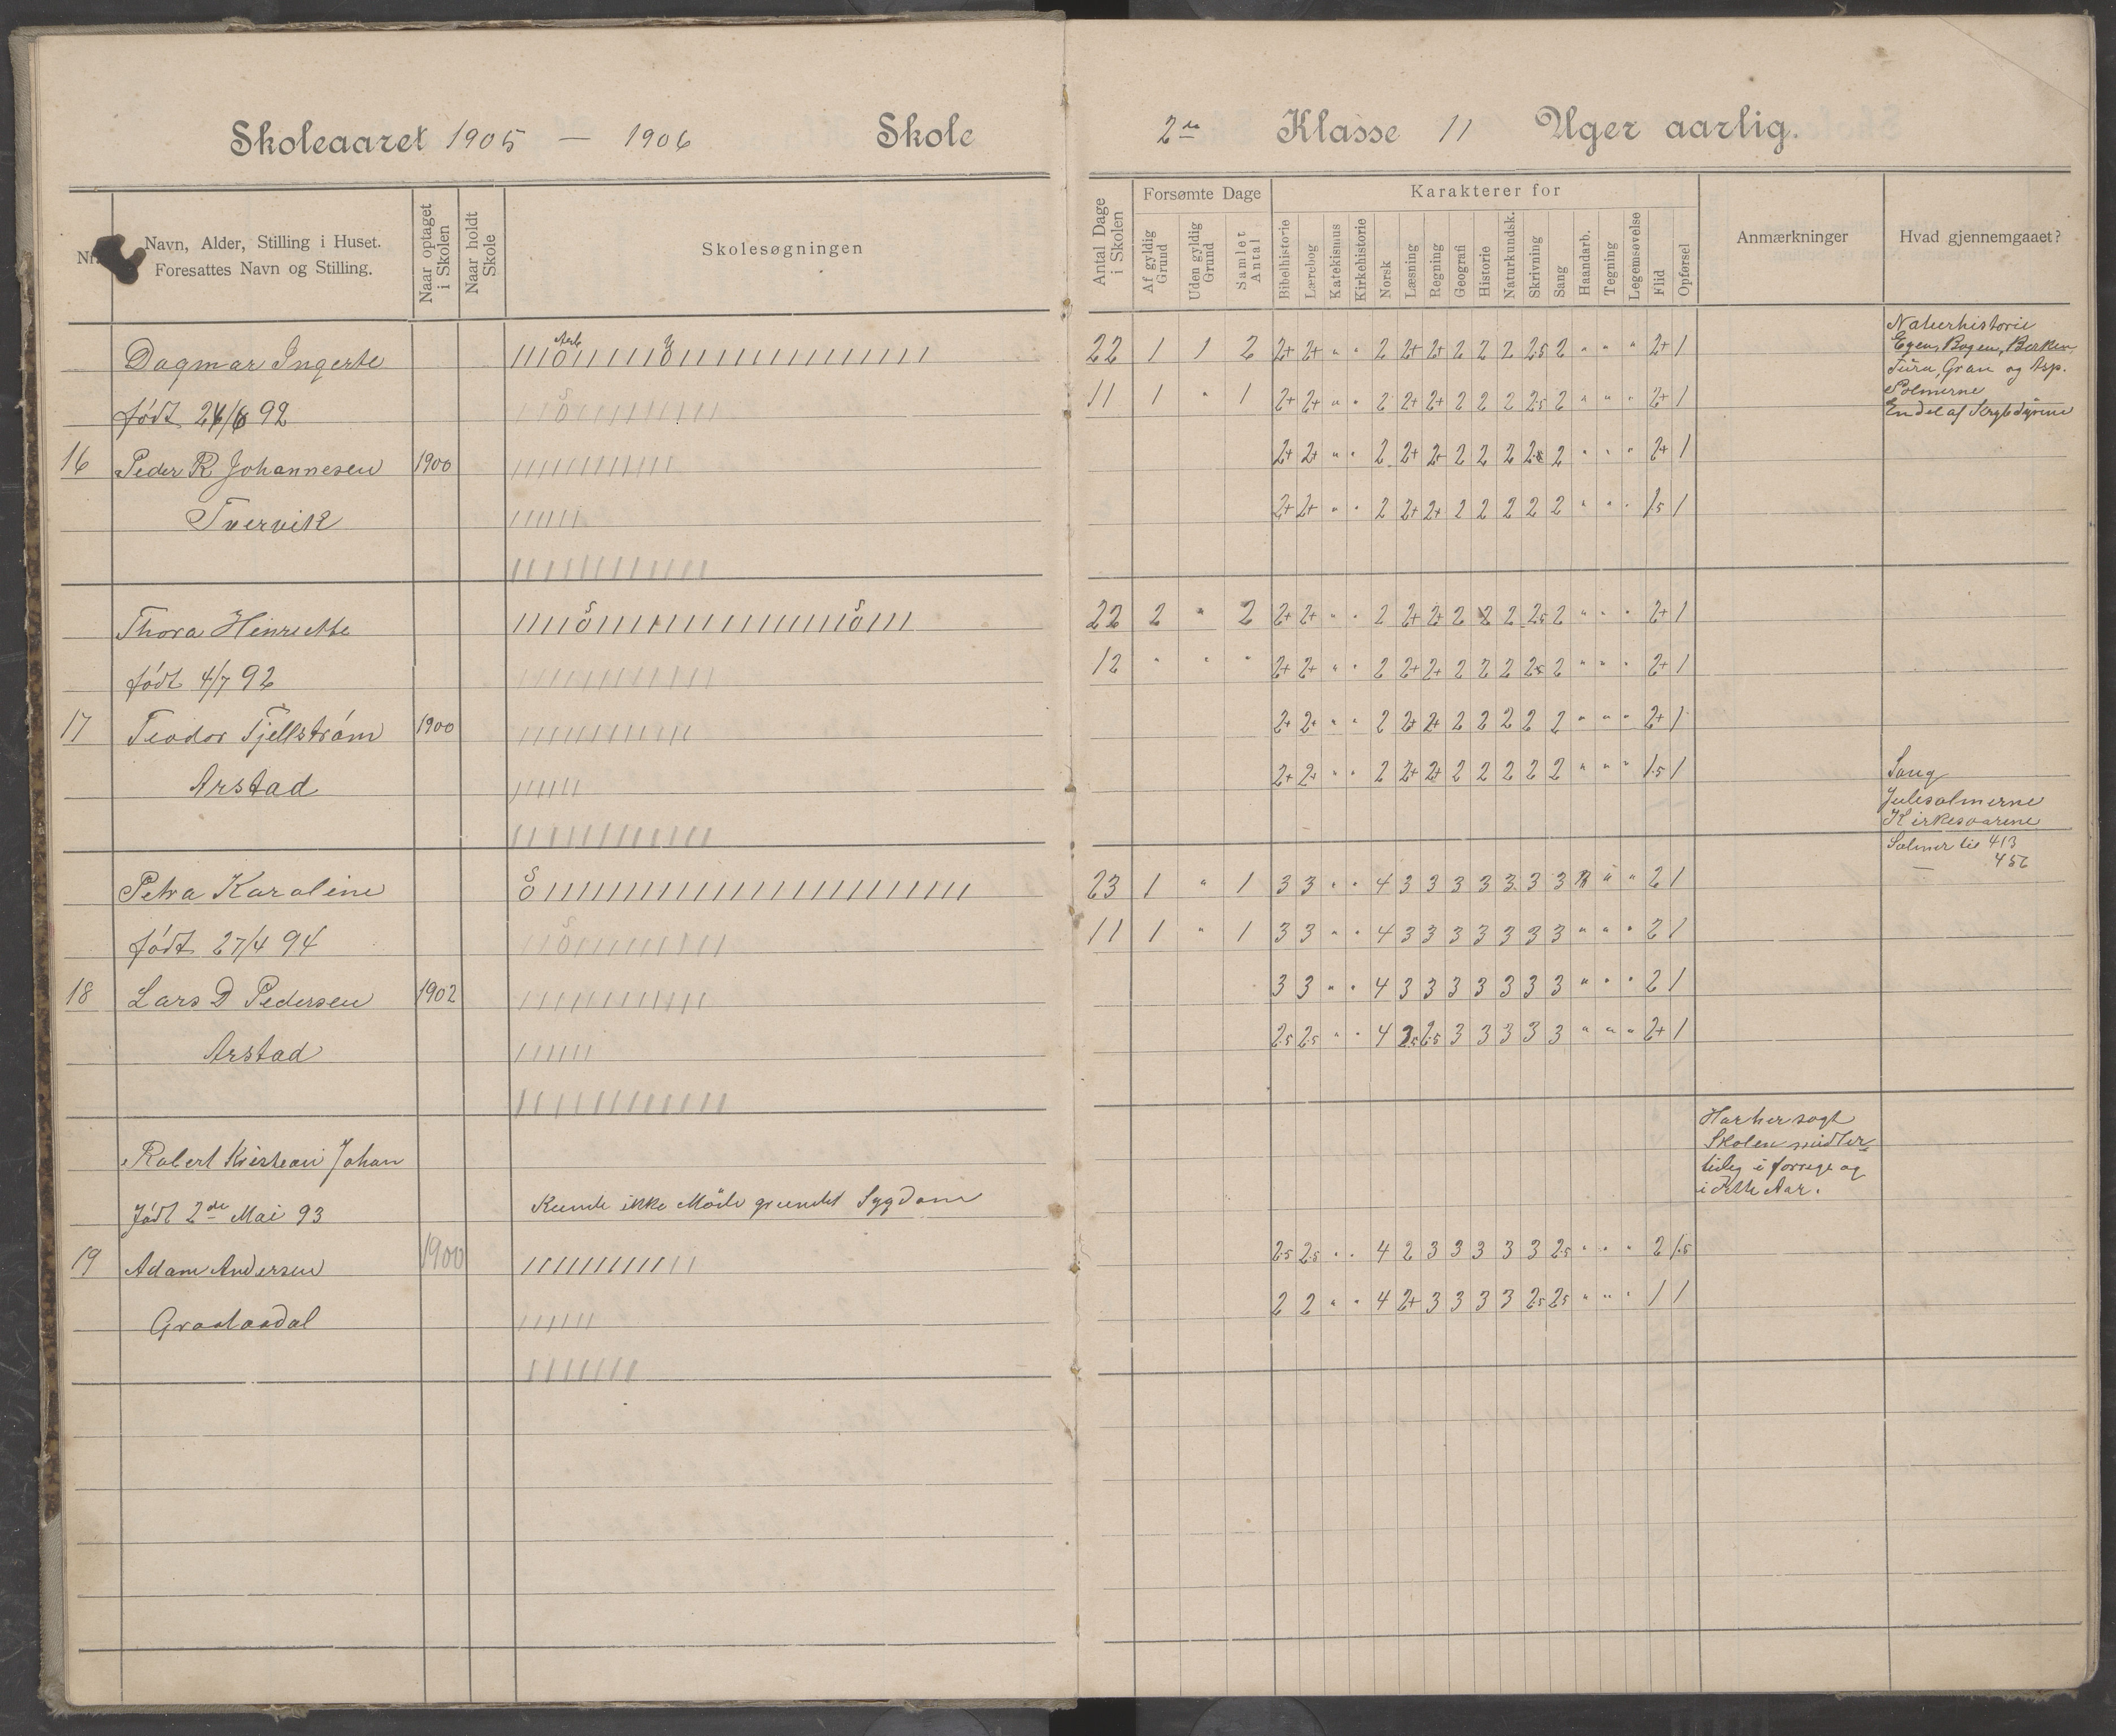 Skoleaaret 1905 — 1906 Skole
2de Klasse 11 Uger aarlig.
Nr.
Navn, Alder, Stilling i Huset.
Foresattes Navn og Stilling.
Naar optaget i Skolen
Naar holdt Skole
Skolesøgningen
Antal Dage i Skolen
Forsømte Dage
Af gyldig Grund
Uden gyldig Grund
Samlet Antal
Karakterer for
Bibelhistorie
Lærebog
Katekismus
Kirkehistorie
Norsk
Læsning
Regning
Geografi
Historie
Naturkundsk.
Skrivning
Sang
Haandarb.
Tegning
Legemsøvelse
Flid
Opførsel
Anmærkninger
Hvad gjennemgaaet?
Dagmar Ingerte 22 1 1 2 2+ 2+ " " 2 2+ 2+ 2 2 2 2.5 2 " " " 2+ 1
født 24/6 92 11 1 " 1 2+ 2+ " " 2 2+ 2+ 2 2 2 2.5 2 " " " 2+ 1
16 Peder R Johannesen 1900 2+ 2+ " " 2 2+ 2+ 2 2 2 2 " " " 2+ 1
Tvervik 2+ 2+ " " 2 2+ 2+ 2 2 2 2 2 " " " 1.5 1
Naturhistorie
Egen, Bogen, Birken,
Furu, Gran og Asp.
Endel af Krybdyrene
Thora Henriette 22 2 " 2 2+ 2+ " " 2 2+ 2+ 2 2 2 2.5 2 " " " 2+ 1
født 4/7 92 12 " " " 2+ 2+ " " 2 2+ 2+ 2 2 2 2.5 2 " " " 2+ 1
17 Teodor Fjellstrøm 1900 2+ 2+ " " 2 2+ 2+ 2 2 2 2 2 " " " 2+ 1
Arstad 2+ 2+ " " 2 2+ 2+ 2 2 2 2 2 " " " 1.5 1
Sang
Julesalmerne
Kirkesvarene
Salmer til 413
— 456
Petra Karoline 23 1 " 1 3 3 " " 4 3 3 3 3 3 3 3 " " 2 1
født 27/4 94 11 1 " 1 3 3 " " 4 3 3 3 3 3 3 3 " " " 2 1
18 Lars D Pedersen 1902 3 3 " " 4 3 3 3 3 3 3 3 " " " 2 1
Arstad 2.5 2.5 " " 4 2.5 2.5 3 3 3 3 3 " " " 2+ 1
Robert Kristian Johan
Født 2de Mai 93 Kunde ikke Møde grundet Sygdom
19 Adam Andersen 1900 2.5 2.5 " " 4 2 3 3 3 3 3 2.5 " " " 2 1.5
Graataadal 2 2 " " 4 2+ 3 3 3 3 2.5 2.5 " " " 1 1
Har her søgt
Skolen midler=
tidig i forrige og
i dette Aar.